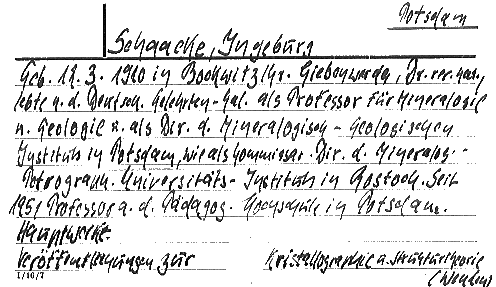 Potsdam
Schaacke, Ingeburg
Geb. 12. 3. 1910 in Bockwitz Kr. Liebenwerda, Dr. rer. nat,
lebte n. d. Deutsch. Gelehrten-Kal. als Professor für Mineralogie
u. Geologie u. als Dir. d. Mineralogisch-Geologischen
Instituts in Potsdam, wie als kommissar. Dir. d. Mineralog.-
Petrograph. Universitäts-Instituts in Rostock. Seit
1951 Professor a. d. Pädagog. Hochschule in Potsdam.
Hauptwerke:
Veröffentlichungen zur Kristallographie u. Strukturtheorie